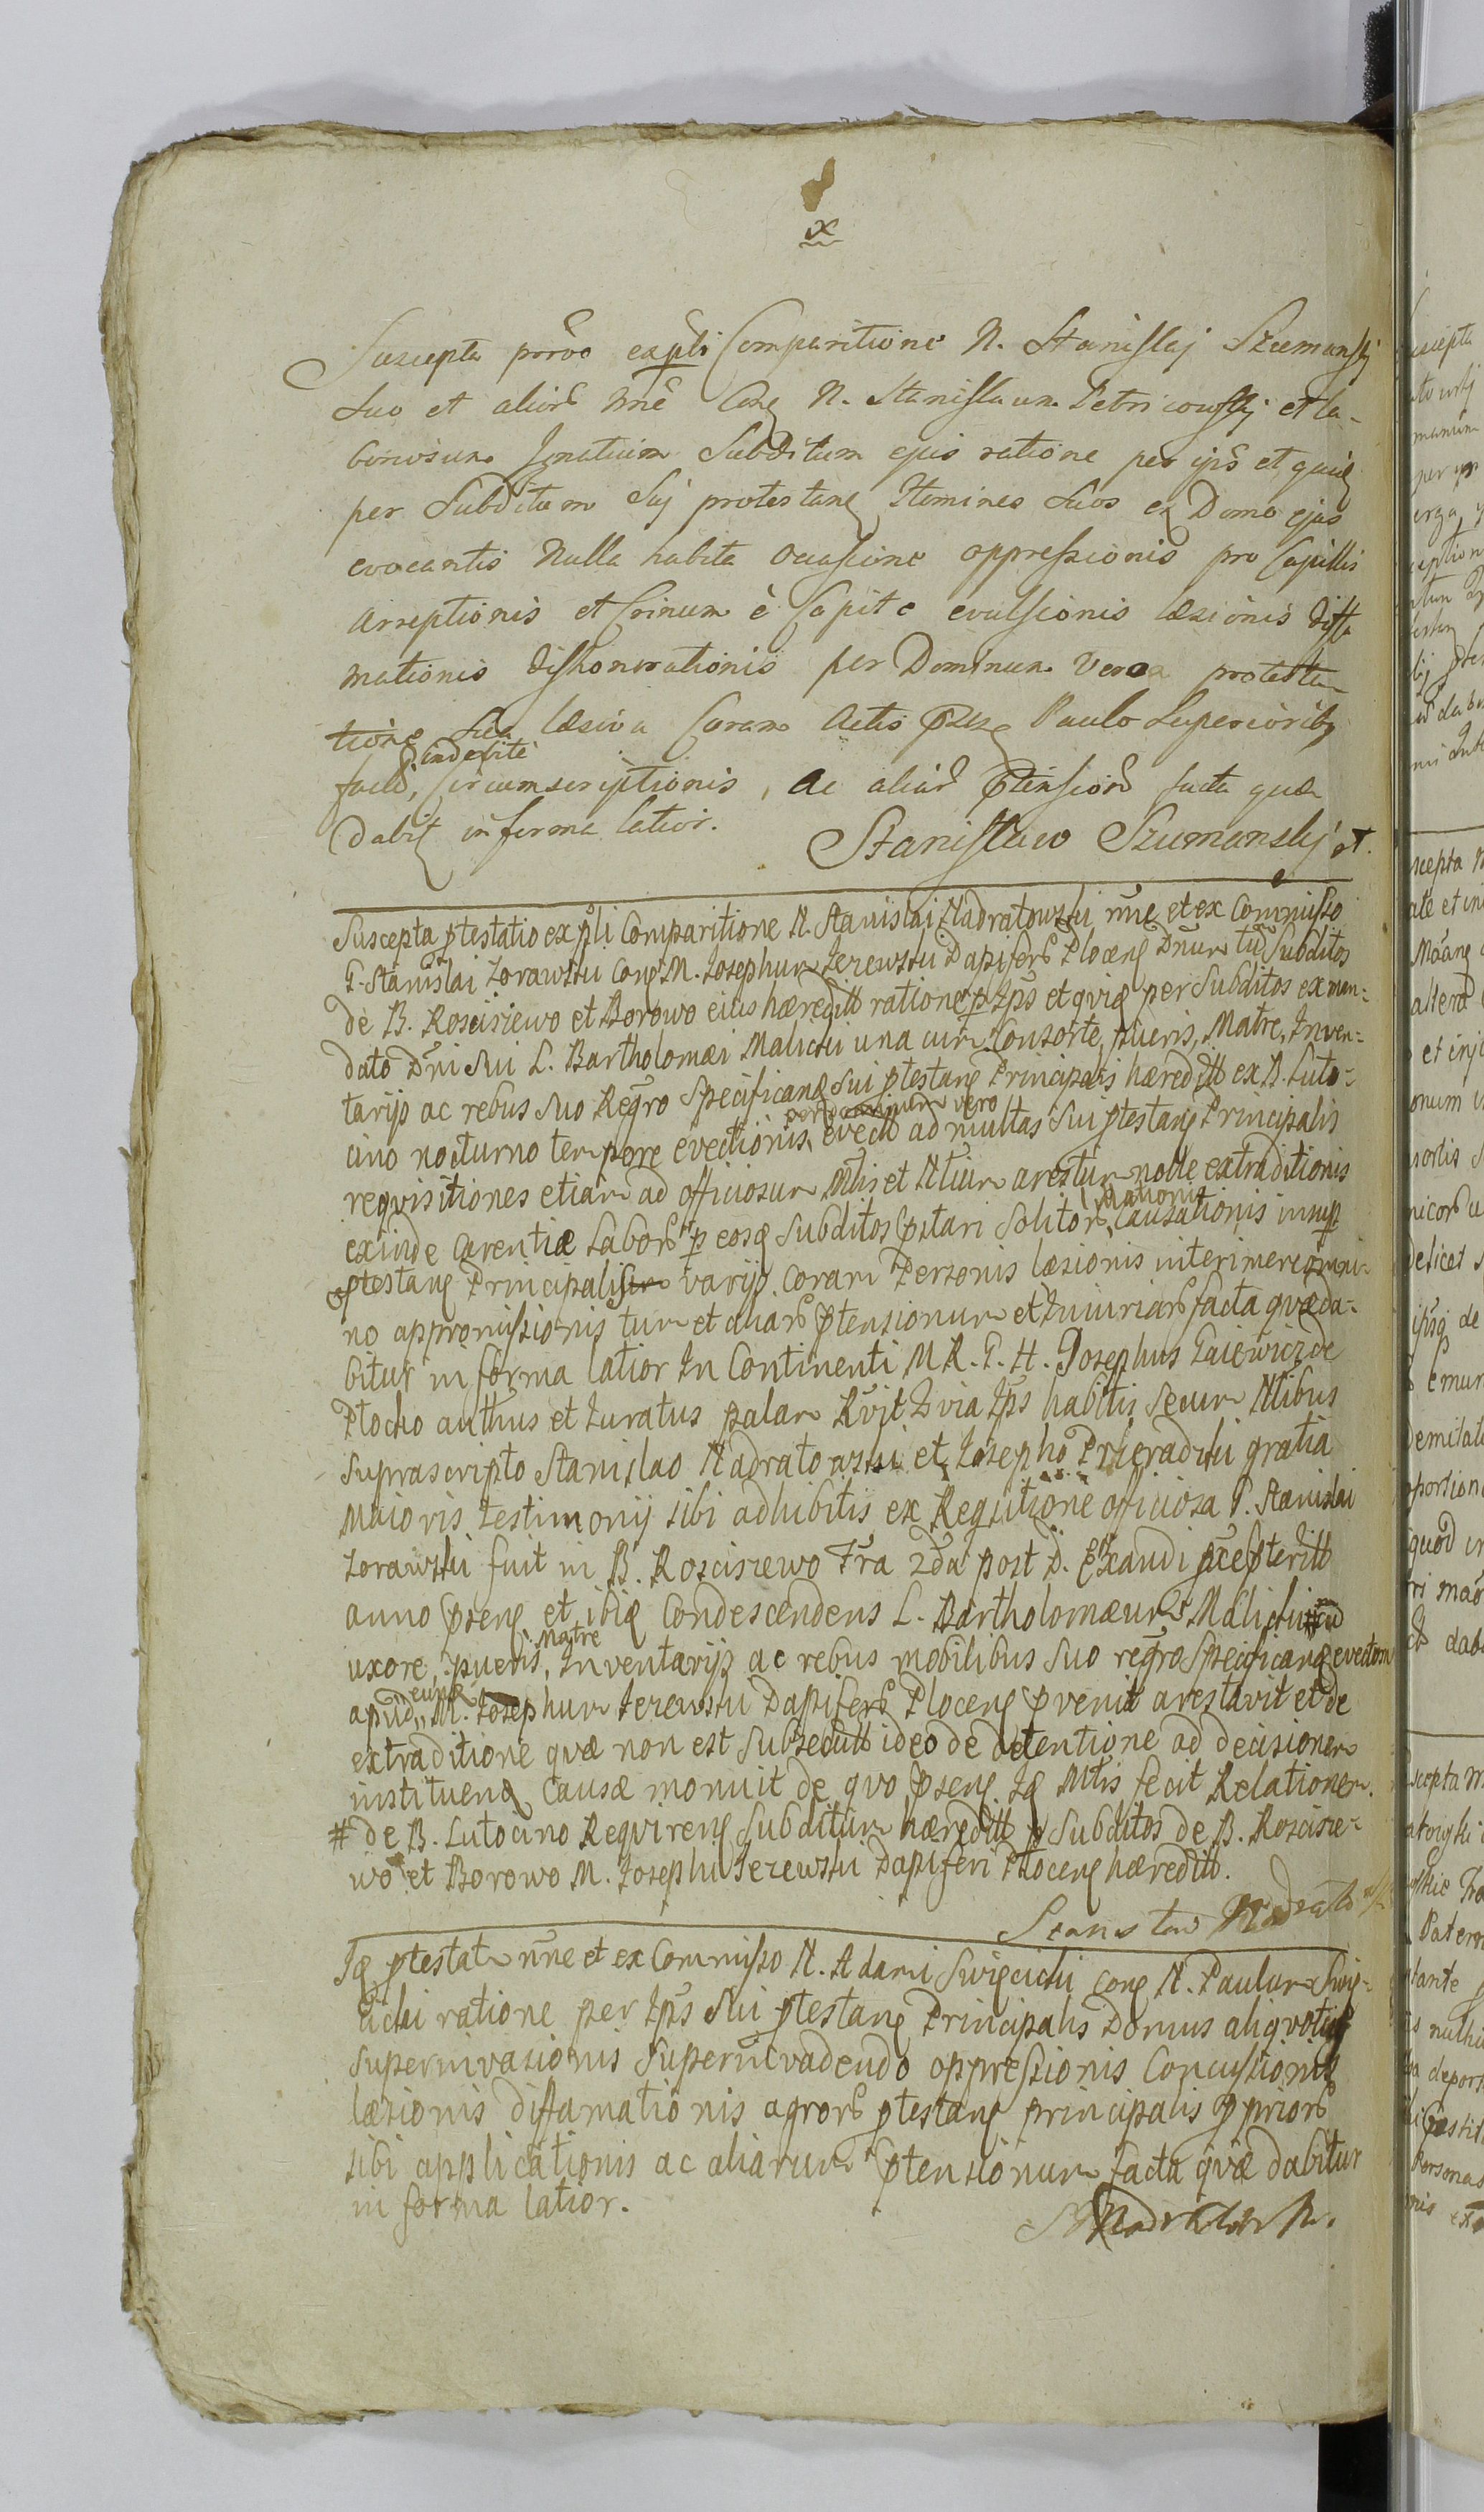 x
Suscepta prõe exp̃li Comparitione N. Stanislaj Szumanskj
Suo et alior̃ nñe Con̄ N. Stanislaum Petricowskj et la-
boriosum Ignatium Subditum ejus ratione per ips̃ et quidē
per Subditum Suj protestanē Homines Suos ex Domo ejus
evocantis Nulla habita occasione oppressionis pro Capillis
Arreptionis et Crinium è Capite evulsionis læsionis diffa
mationis dishonorationis per Dominum Vero a protesta
tione Sua læsiva Coram Actis Prz̃ Paulo Superioribȝ
indebitè
facti, Circumscriptionis, Ac aliar̃ Ptensior̃ facta quæ
Dabit̃ in forma latior.
Stanislaw Szumanskj
Suscepta ptestatio ex p̃li Comparitione N. Stanislai Nadratowski nñe et ex Commisso
G. Stanislai Zorawski Conē M. Josephum Jezewski Dapifer̃ Plocenē Dnum tũ Subditos
de B. Roscisiewo et Borowo eius hæreditt ratione p Ips̃ et qvidē per Subditos ex man-
dato Dñi Sui L. Bartholomæi Malicki una cum Consorte, pueris, Matre, Inven-
tarijs ac rebus Suo Regr̃o Specificanē Sui ptestanē Principalis hæreditt ex B. Luto-
cino nocturno tempore evectionis, evecti ad multas Sui ptestanē Principalis
reqvisitiones etiam ad officiosum Mtis et Ntium arestum nolle extraditionis
exinde Carentiæ Labor̃ p eosdē Subditos pstari Solitor̃, Causationis insup
ptestanē Principalis varijs coram Personis læsionis interimere
no appromissionis tum et aliar̃ ptensionum et Iniuriar̃ facta qvæ da-
bitur in forma latior In Continenti M R. G. H. Josephus Gaiewicz de
Plocko authus et Iuratus palam Rvit Qvia Ips̃ habitis Secum Ntibus
Suprascripto Stanislao Nadratowski et Josepho Przeradzki gratia
Maioris testimonij sibi adhibitis ex Reqsitione officiosa G. Stanislai
Zorawski fuit in B. Roscisiewo Fra 2da post D. Exaudi pxe pteritt
anno psenē et ibidē Condescendens L. Bartholomæum Malicki # cũ
Matre
uxore, pueris, Inventarijs ac rebus mobilibus Suo regr̃o Specificanē evectom
eundē
apud M. Josephum Jezewski Dapifer̃ Plocenē pvenit arestavit et de
extraditione qvæ non est Subsecutt ideo de detentione ad decisionem
instituenē Causæ monuit de qvo psenē Idē Mtis fecit Relationem.
# de B. Lutocino Reqvirenē Subditum hæreditt p Subditos de B. Roscisie-
wo et Borowo M. Josephi Jezewski Dapiferi Plocenē hæreditt.
Stanislaw Nadratowski
Idē ptestatur nñe et ex Commisso N. Adami Swięcicki conē N. Paulum Swię-
cicki ratione per Ips̃ Sui ptestanē Principalis Domus aliqvoties
Superinvasionis Superinvadendo oppressionis Concussionis
læsionis diffamationis agror̃ ptestanē principalis pprior̃
sibi applicationis ac aliarum ptensionum facta qvæ dabitur
in forma latior.
S Nadratowski